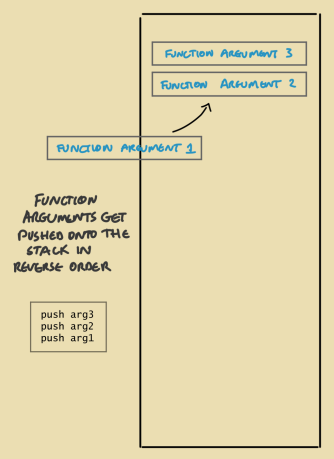 FUNCTION ARGUMENT 3
FUNCTION ARGUMENT 2
FUNCTION ARGUMENT 1
FUNCTION
ARGUMENTS GET
PUSHED ONTO THE
STACK IN
REVERSE ORDER
push arg3
push arg2
push arg1